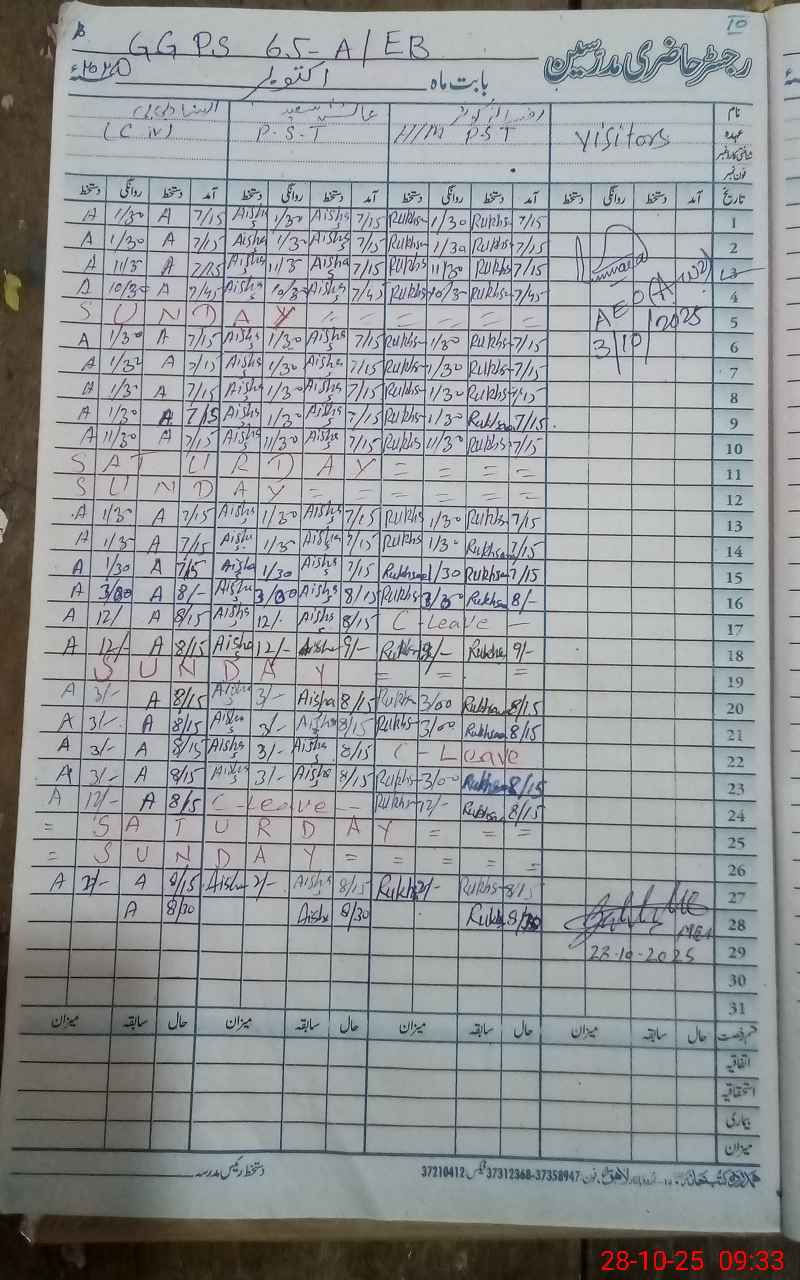 10
GGPS 65-A/EB
رجسٹر حاضری مدرسین
بابت ماہ اکتوبر
نام
عہدہ Visitors H/M PST P.S.T
شناختی کارڈ نمبر
فون نمبر
تاریخ آمد دستخط روانگی دستخط آمد دستخط روانگی دستخط آمد دستخط روانگی دستخط آمد دستخط روانگی دستخط
A 1/30 A 7/15 Aisha 1/30 Aisha 7/15 Rukhs 1/30 Rukhs 7/15 1
A 1/30 A 7/15 Aisha 1/30 Aisha 7/15 Rukhs 1/30 Rukhs 7/15 2
A 11/3 A 7/15 Aisha 11/3 Aisha 7/15 Rukhs 11/30 Rukhs 7/15 3
A 10/30 A 7/45 Aisha 10/30 Aisha 7/45 Rukhs 10/3 Rukhs 7/45 4
SUNDAY = = = = = 5
A 1/30 A 7/15 Aisha 1/30 Aisha 7/15 Rukhs 1/30 Rukhs 7/15 6
A 1/30 A 7/15 Aisha 1/30 Aisha 7/15 Rukhs 1/30 Rukhs 7/15 7
A 1/3 A 7/15 Aisha 1/30 Aisha 7/15 Rukhs 1/30 Rukhs 7/15 8
A 1/30 A 7/15 Aisha 1/30 Aisha 7/15 Rukhs 1/30 Rukhsa 7/15 9
A 11/30 A 7/15 Aisha 11/30 Aisha 7/15 Rukhs 11/30 Rukhs 7/15 10
SATURDAY = = = = 11
SUNDAY = = = = = = 12
A 1/30 A 7/15 Aisha 1/30 Aisha 7/15 Rukhs 1/30 Rukhs 7/15 13
A 1/30 A 7/15 Aisha 1/30 Aisha 7/15 Rukhs 1/30 Rukhsa 7/15 14
A 1/30 A 7/15 Aisha 1/30 Aisha 7/15 Rukhsa 1/30 Rukhsa 7/15 15
A 3/00 A 8/- Aisha 3/00 Aisha 8/15 Rukhs 3/00 Rukhsa 8/- 16
A 12/ A 8/15 Aisha 12/. Aisha 8/15 C-Leave - 17
A 12/- A 8/15 Aisha 12/- Aisha 9/- Rukhs Rukhsa 9/- 18
SUNDAY = = = = 19
A 3/- A 8/15 Aisha 3/- Aisha 8/15 Rukhs 3/00 Rukhsa 8/15 20
A 3/- A 8/15 Aisha 3/- Aisha 8/15 Rukhs 3/00 Rukhsa 8/15 21
A 3/- A 8/15 Aisha 3/- Aisha 8/15 C-Leave 22
A 3/- A 8/15 Aisha 3/- Aisha 8/15 Rukhs 3/00 Rukhsa 8/15 23
A 12/- A 8/15 C-Leave - Rukhs 12/- Rukhsa 8/15 24
= SATURDAY = = = 25
= SUNDAY = = = = = 26
A 2/- A 8/15 Aisha 2/- Aisha 8/15 Rukh 2/- Rukhs 8/15 27
A 8/30 Aisha 8/30 Rukh 8/30 28
29
30
31
AEO
3/10/2025
28-10-2025
قسم رخصت حال سابقہ میزان حال سابقہ میزان حال سابقہ میزان حال سابقہ میزان
اتفاقیہ
استحقاقیہ
بیماری
میزان
دستخط رئیس مدرسہ
فون: 37358947-37312368 فیکس 37210412
28-10-25 09:33